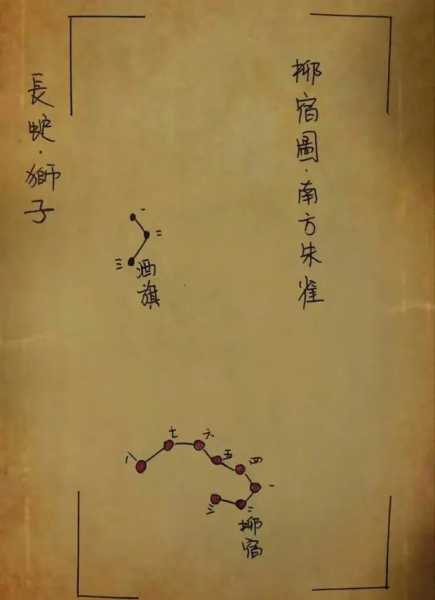 柳宿圖·南方朱雀
長蛇·獅子
一
二
三
酒旗
八
七
六
五
四
一
二
三
柳宿